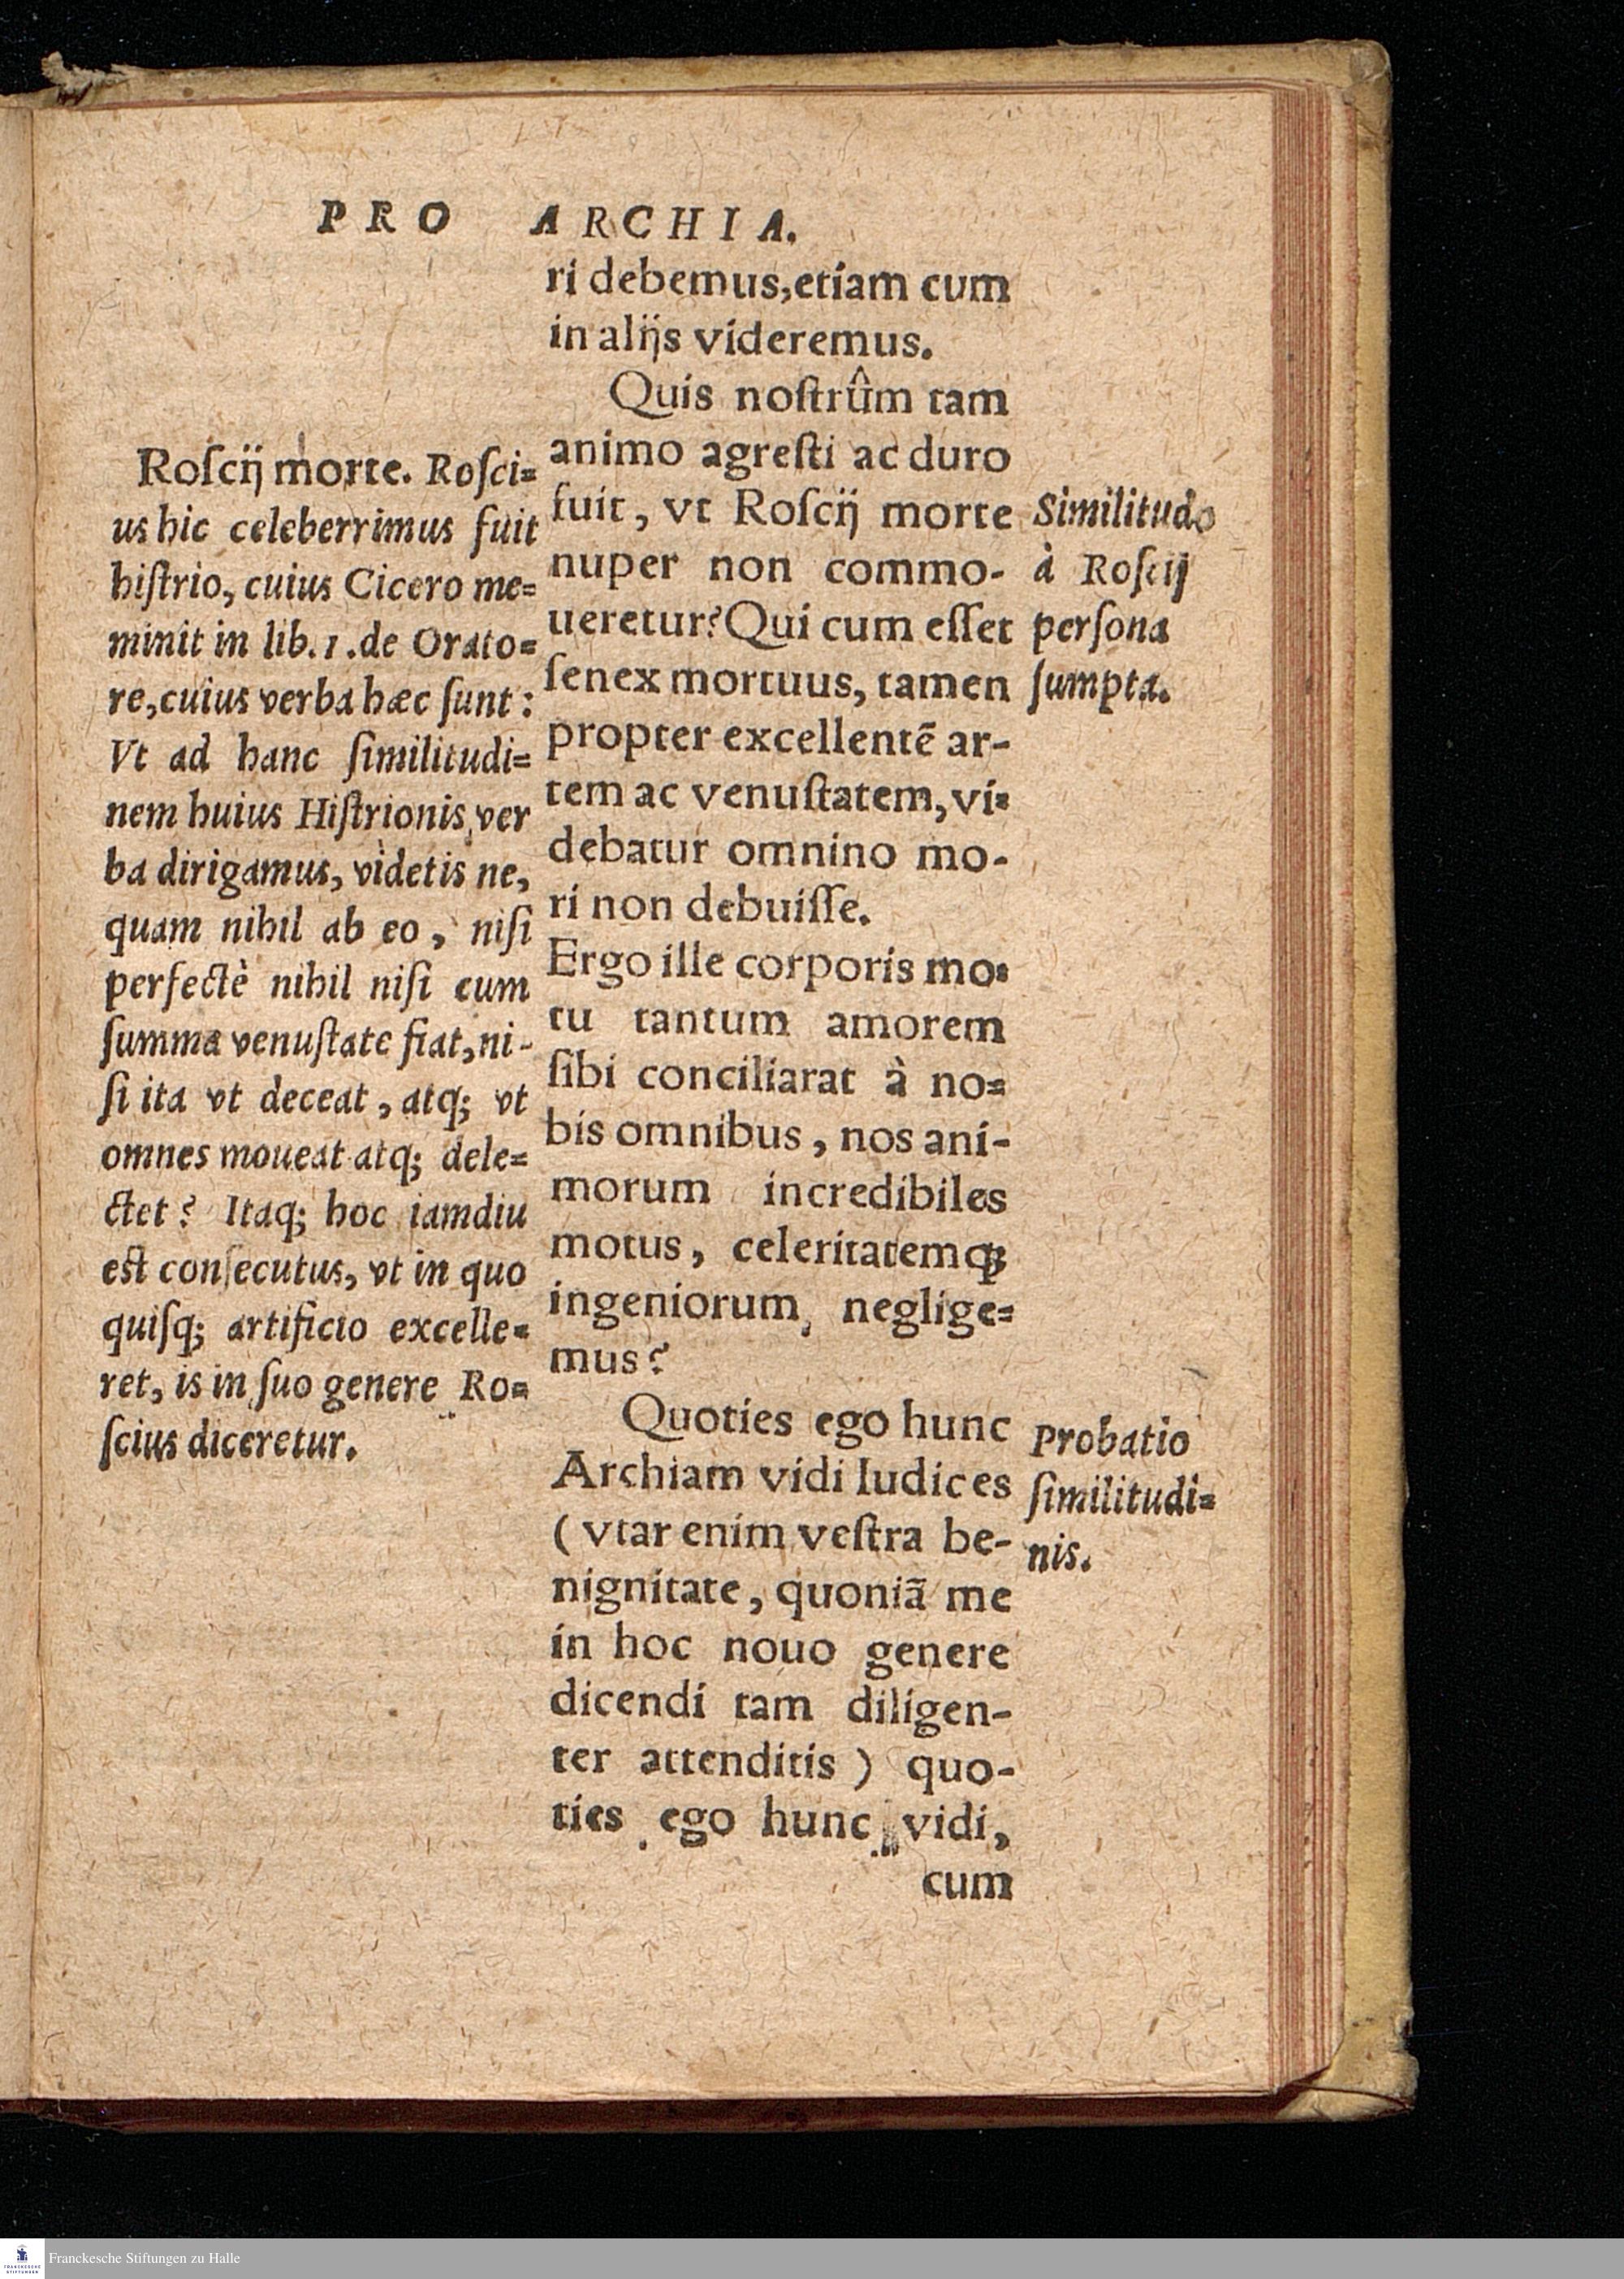 PRO ARCHIA.
ri debemus, etiam cum
in alijs videremus.
Quis noſtrûm tam
animo agreſti ac duro
fuit, vt Roſcij morte
nuper non commo-
ueretur? Qui cum eſſet
ſenex mortuus, tamen
propter excellentē ar-
tem ac venuſtatem, vi=
debatur omnino mo-
ri non debuiſſe.
Ergo ille corporis mo=
tu tantum amorem
ſibi conciliarat à no=
bis omnibus, nos ani-
morum incredibiles
motus, celeritatemq;
ingeniorum neglige=
mus?
Quoties ego hunc
Archiam vidi Iudices
(vtar enim veſtra be-
nignitate, quoniā me
in hoc nouo genere
dicendi tam diligen-
ter attenditis) quo-
ties ego hunc vidi,
cum
Roſcij morte. Roſci=
us hic celeberrimus fuit
hiſtrio, cuius Cicero me=
minit in lib. 1. de Orato=
re, cuius verba hæc ſunt:
Vt ad hanc ſimilitudi=
nem huius Hiſtrionis ver
ba dirigamus, videtis ne,
quam nihil ab eo, niſi
perfectè nihil niſi cum
ſumma venuſtate fiat, ni-
ſi ita vt deceat, atq; vt
omnes moueat atq; dele=
ctet? Itaq; hoc iamdiu
eſt conſecutus, vt in quo
quiſq; artificio excelle=
ret, is in ſuo genere Ro=
ſcius diceretur.
Similitudo
à Roſcij
perſona
ſumpta.
Probatio
ſimilitudi=
nis.
FRANCKESCHE
STIFTUNGEN
Franckesche Stiftungen zu Halle